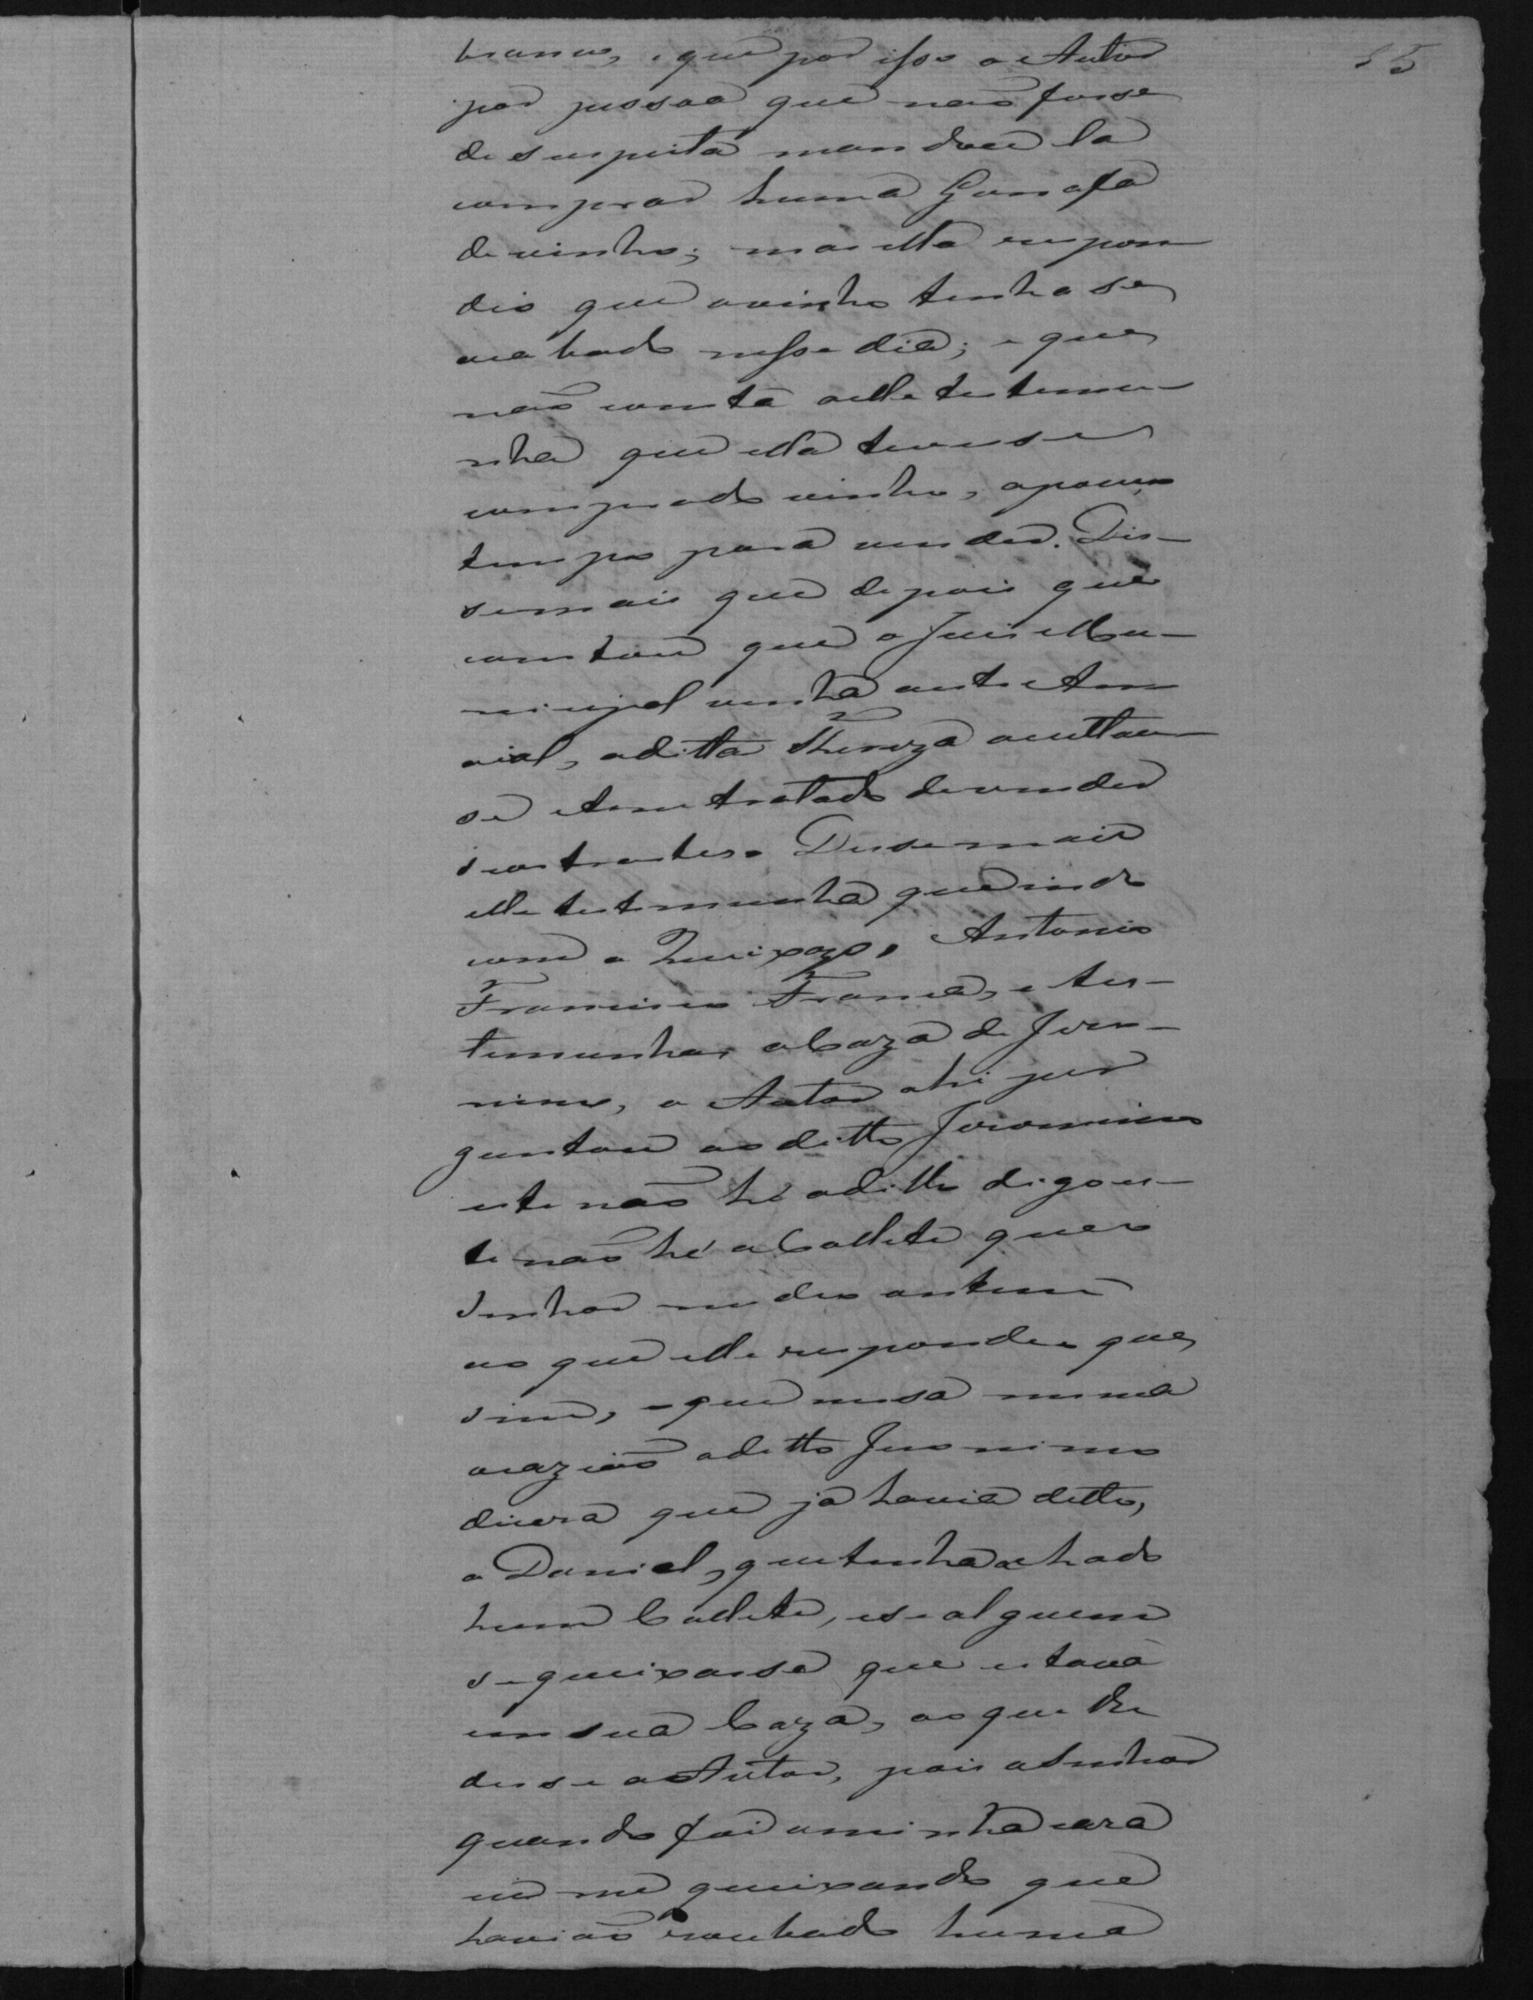 55
branco, e que por isso o Autor
por pessoa que naõ fosse
de suspeita mandou la
comprar huma Garrafa
de vinho; mas ella respon
dio que o vinho tinha se
acabado nesse dia; e que
naõ consta a elle testemu-
nha que ella tivesse
comprado vinho, a pouco
tempo para vender. Dis-
se mais que depois que
constou que o Juis Mu-
nicipal vinha ao Ar
raial, a ditta Thereza ocultou
se tratado de vender
Disse mais
elle testemunha que indo
com o Queixozo, Antonio
Francisco França, e tes-
temunhas a Caza de Jero-
nimo, o Autor ahi per
guntou ao ditto Jeronimo
este naõ hé o ditto digo es-
te naõ hé o Collete que o
Senhor vendeo ontem
ao que elle respondeo que
sim, e que nessa mesma
ocaziaõ o ditto Jeronimo
dicera que já havia ditto,
a Daniel, que tinha achado
hum Collete, e se alguem
se queixasse que estava
em sua Caza, ao que lhe
disse o Autor, pois o Senhor
quando foi a minha casa
eu me queixando que
haviaõ roubado huma